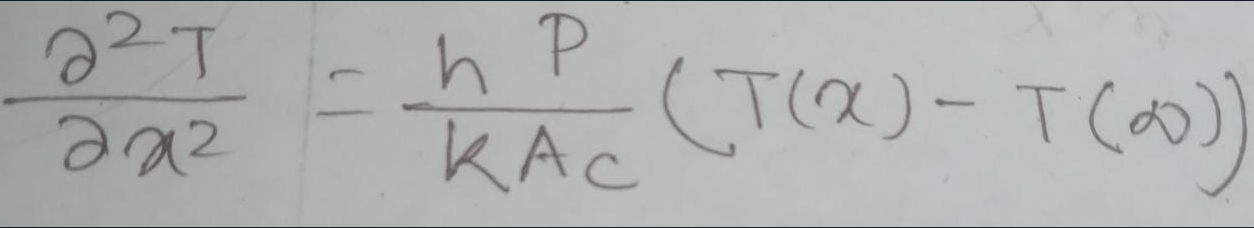 ∂²T/∂x² = hP/kAc (T(x) - T(∞))